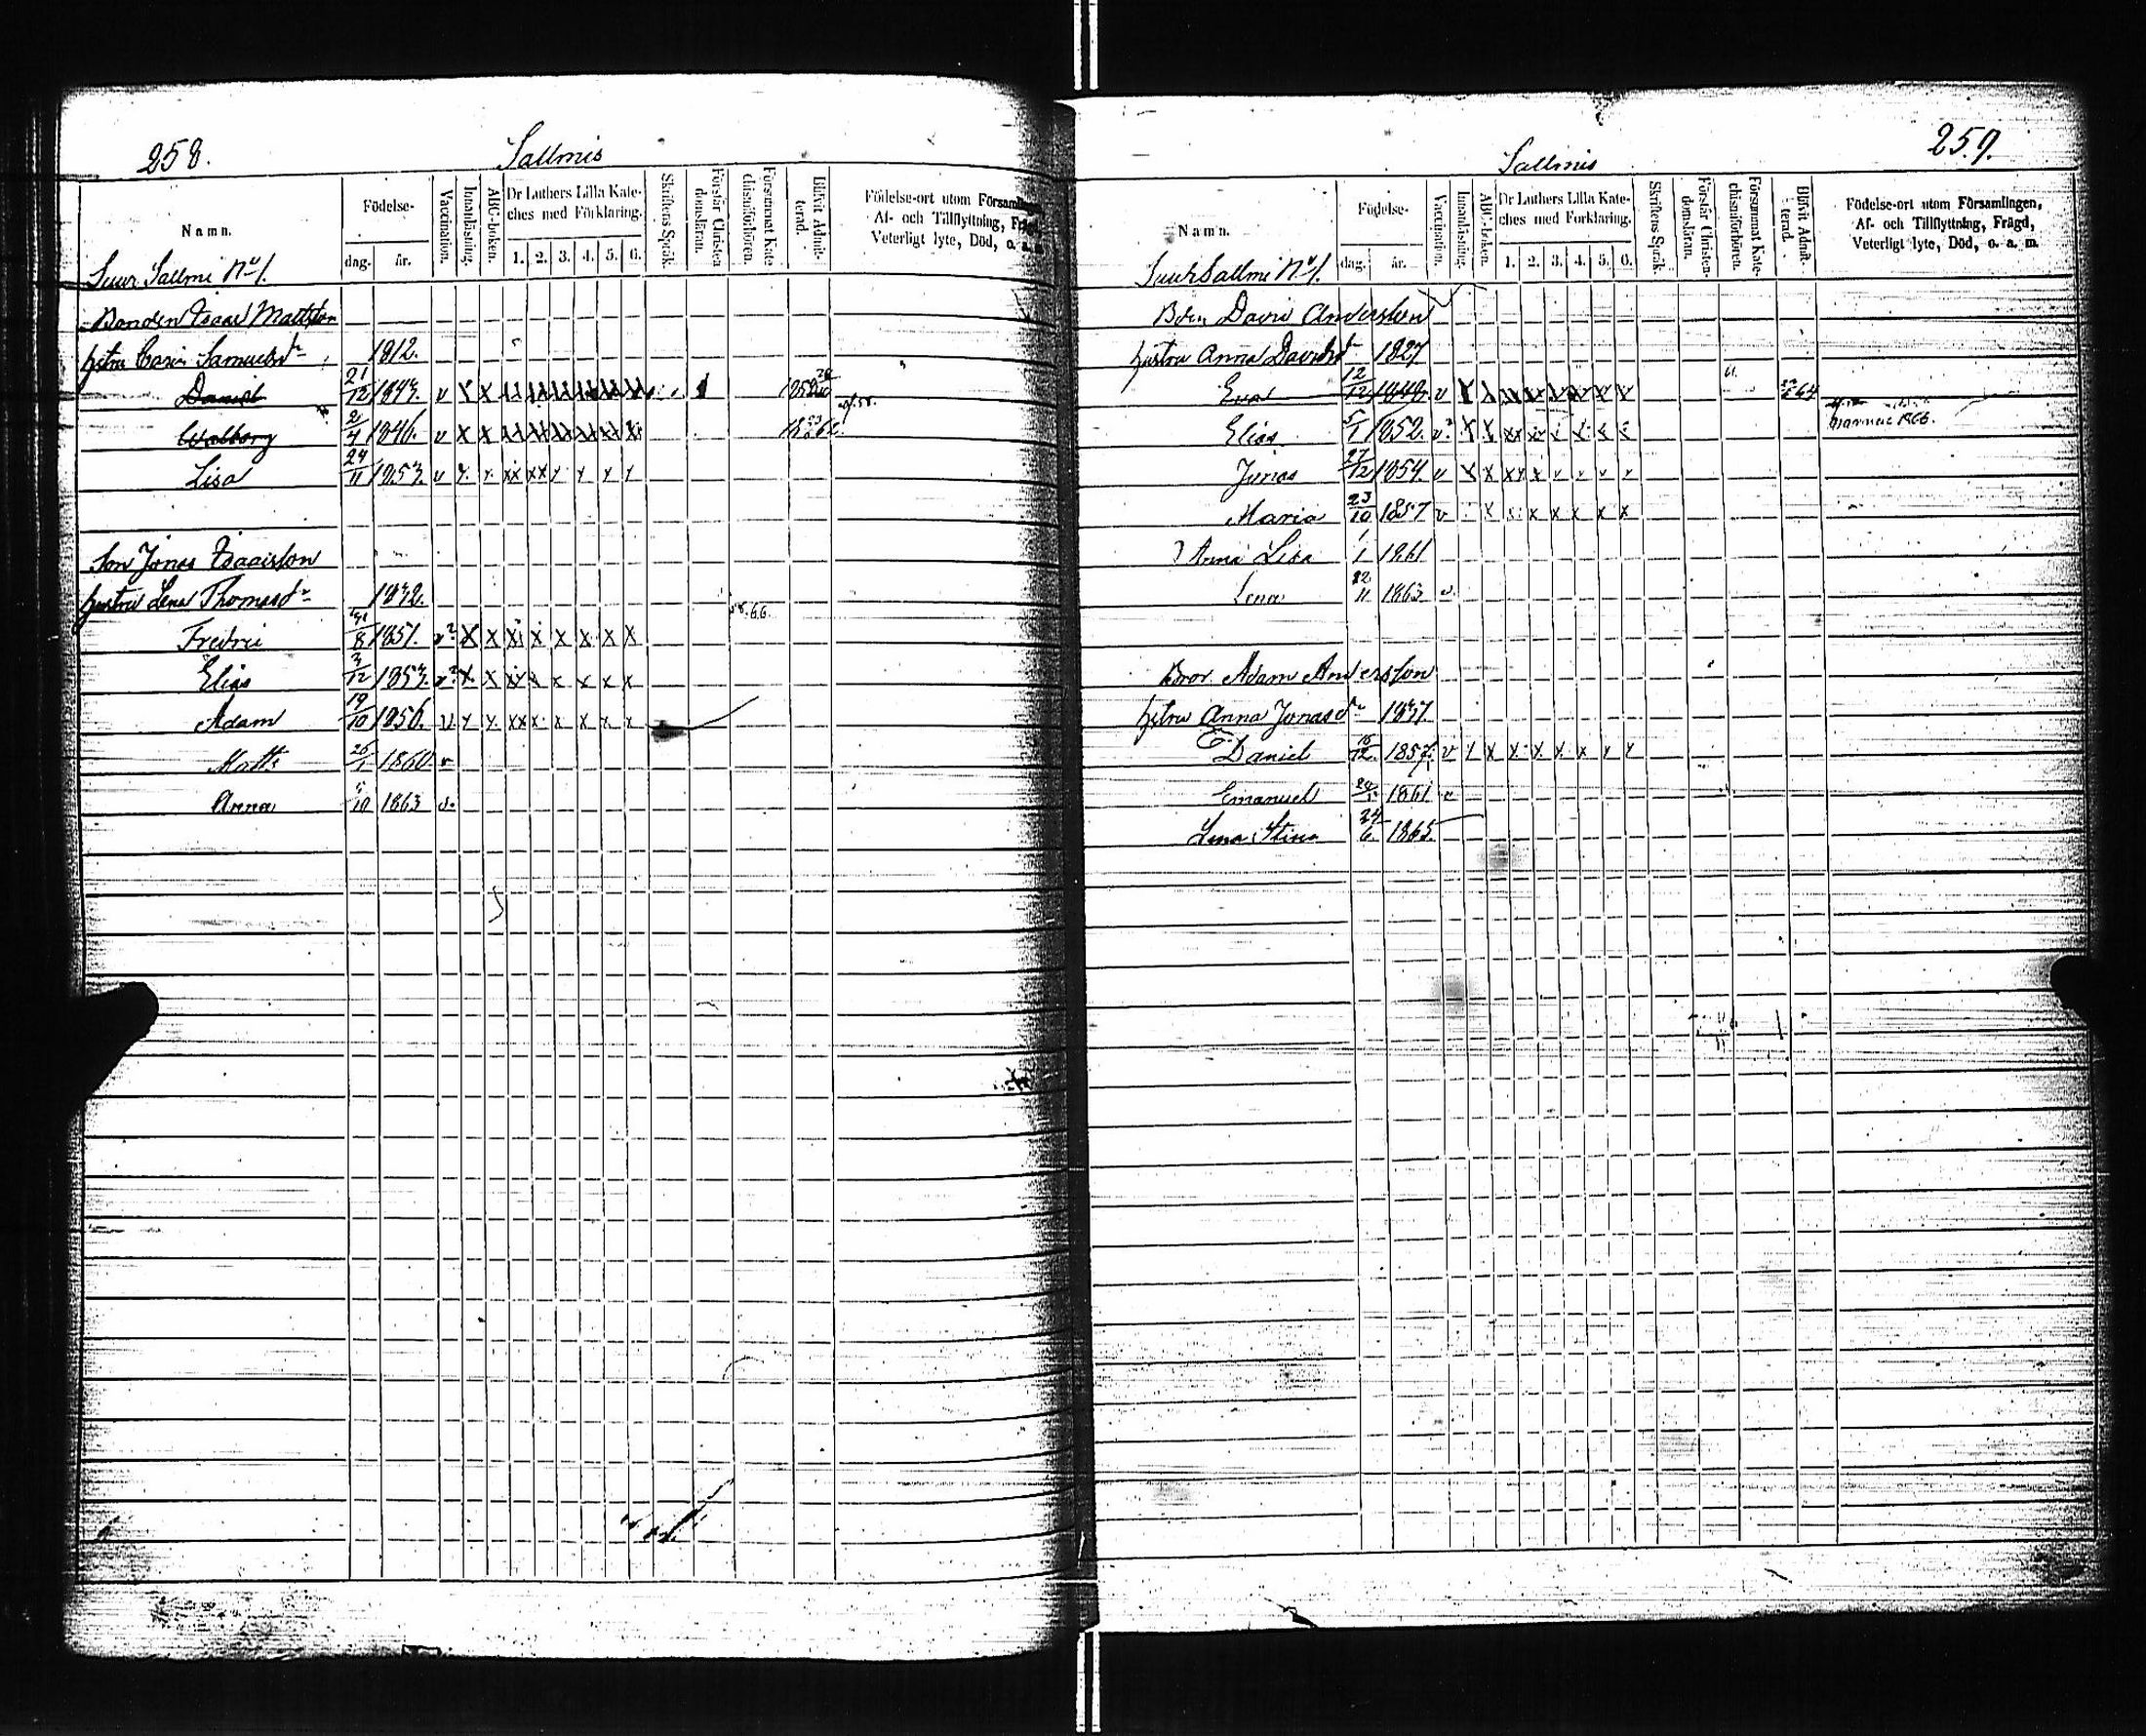 258.
Sallmis
Namn.
Födelse-
dag. år.
Vaccination.
Innanläsning.
ABC-boken.
Dr Luthers Lilla Kate-
ches med Förklaring.
1. 2. 3. 4. 5. 6.
Skriftens Språk.
Förstår Christen
domsläran.
Försummat Kate
chismiförhören.
Blifvit Admit-
terad.
Födelse-ort utom Församlingen
Af- och Tillflyttning, Frägd
Veterligt lyte, Död, o. a. m.
Suur Sallmi No 1.
Bonden Isaac Mattsson
hstru Carin Samuelsdr 1812.
Daniel 21/12 1843. v x x
Walborg 2/4 1846. v x x
Lisa 24/11 1853. v x x xx xx x x x x
Son Jonas Isaacsson
hustru Lena Thomasdr 1832.
66.
Fredric 8 1851. v? x x x x x x x x
Elias 3/12 1853. v? x x xx x x x x x
Adam 19/10 1856. v x x xx x x x x x
Matts 26/1 1860 v
Anna 5/10 1863 v.
259.
Sallmis
Namn.
Födelse-
dag. år.
Vaccination.
Innanläsning.
ABC-boken.
Dr Luthers Lilla Kate-
ches med Förklaring.
1. 2. 3. 4. 5. 6.
Skriftens Språk.
Förstår Christen-
domsläran.
Försummat Kate-
chismiförhören.
Blifvit Admit-
terad.
Födelse-ort utom Församlingen,
Af- och Tillflyttning, Frägd,
Veterligt lyte, Död, o. a. m.
Suur Sallmi No 1.
David Andersson
hustru Anna Davidsdr 1827
Eva 12/12 v
1866.
Elias 5/1 1852. v? x x
Jonas 27/12 1854. v x x xx x x v v v v
Maria 23/10 1857 v x x x x x x x
Anna Lisa 1/1 1861
Lena 22/11 1863 v
Bror Adam Andersson
hstru Anna Jonasdr 1837
Daniel 12. 1857. v x x x x x x x
Emanuel 1861 v
Lena Stina 24/6. 1865.